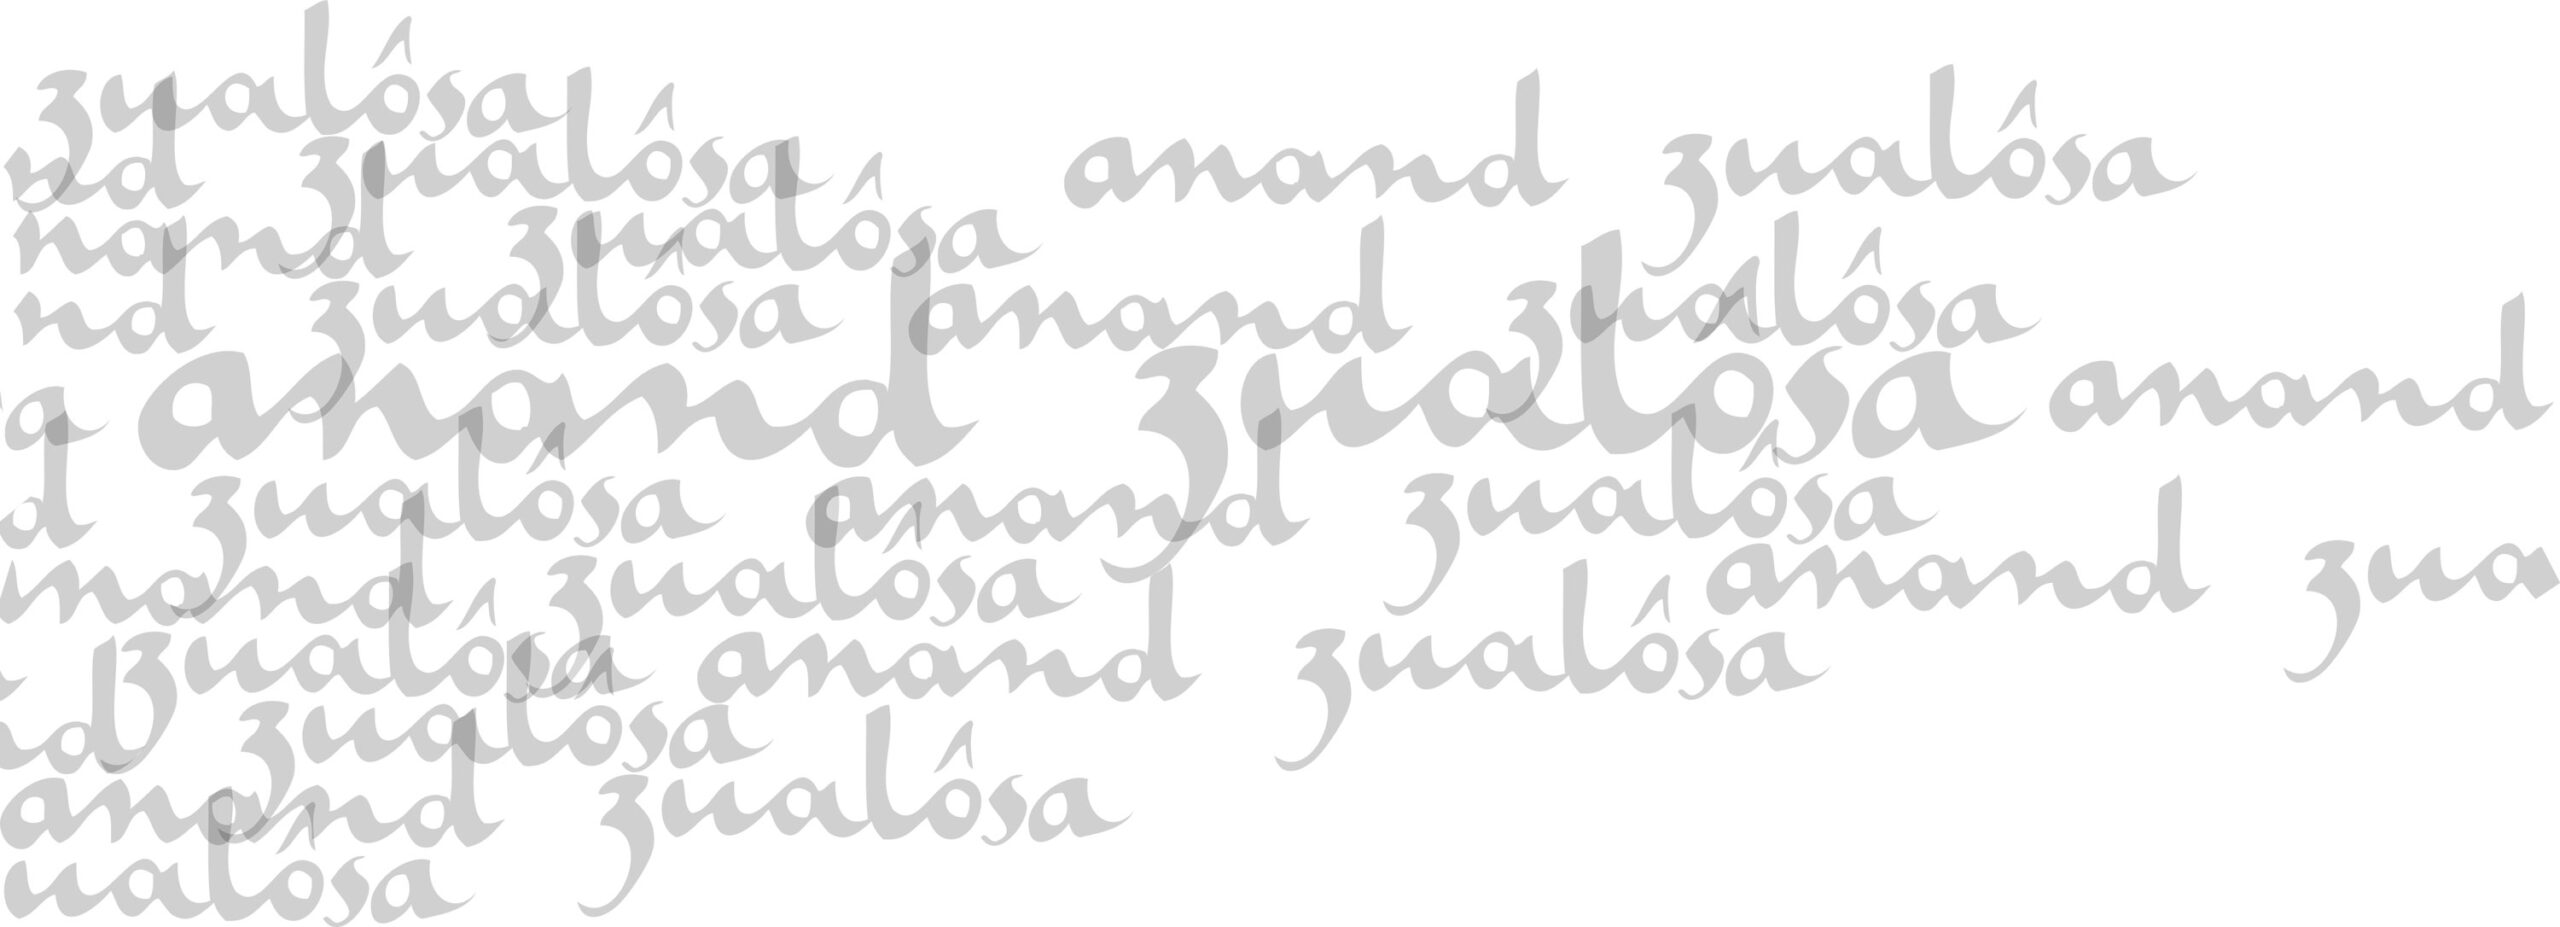 zualôsa
nd zualôsa anand zualôsa
nand zualôsa
nd zualôsa anand zualôsa
a anand zualosa anand
d zualôsa anand zualôsa
anand zualôsa anand zua
zualôsa anand zualôsa
nd zualôsa
anand zualôsa
ualôsa